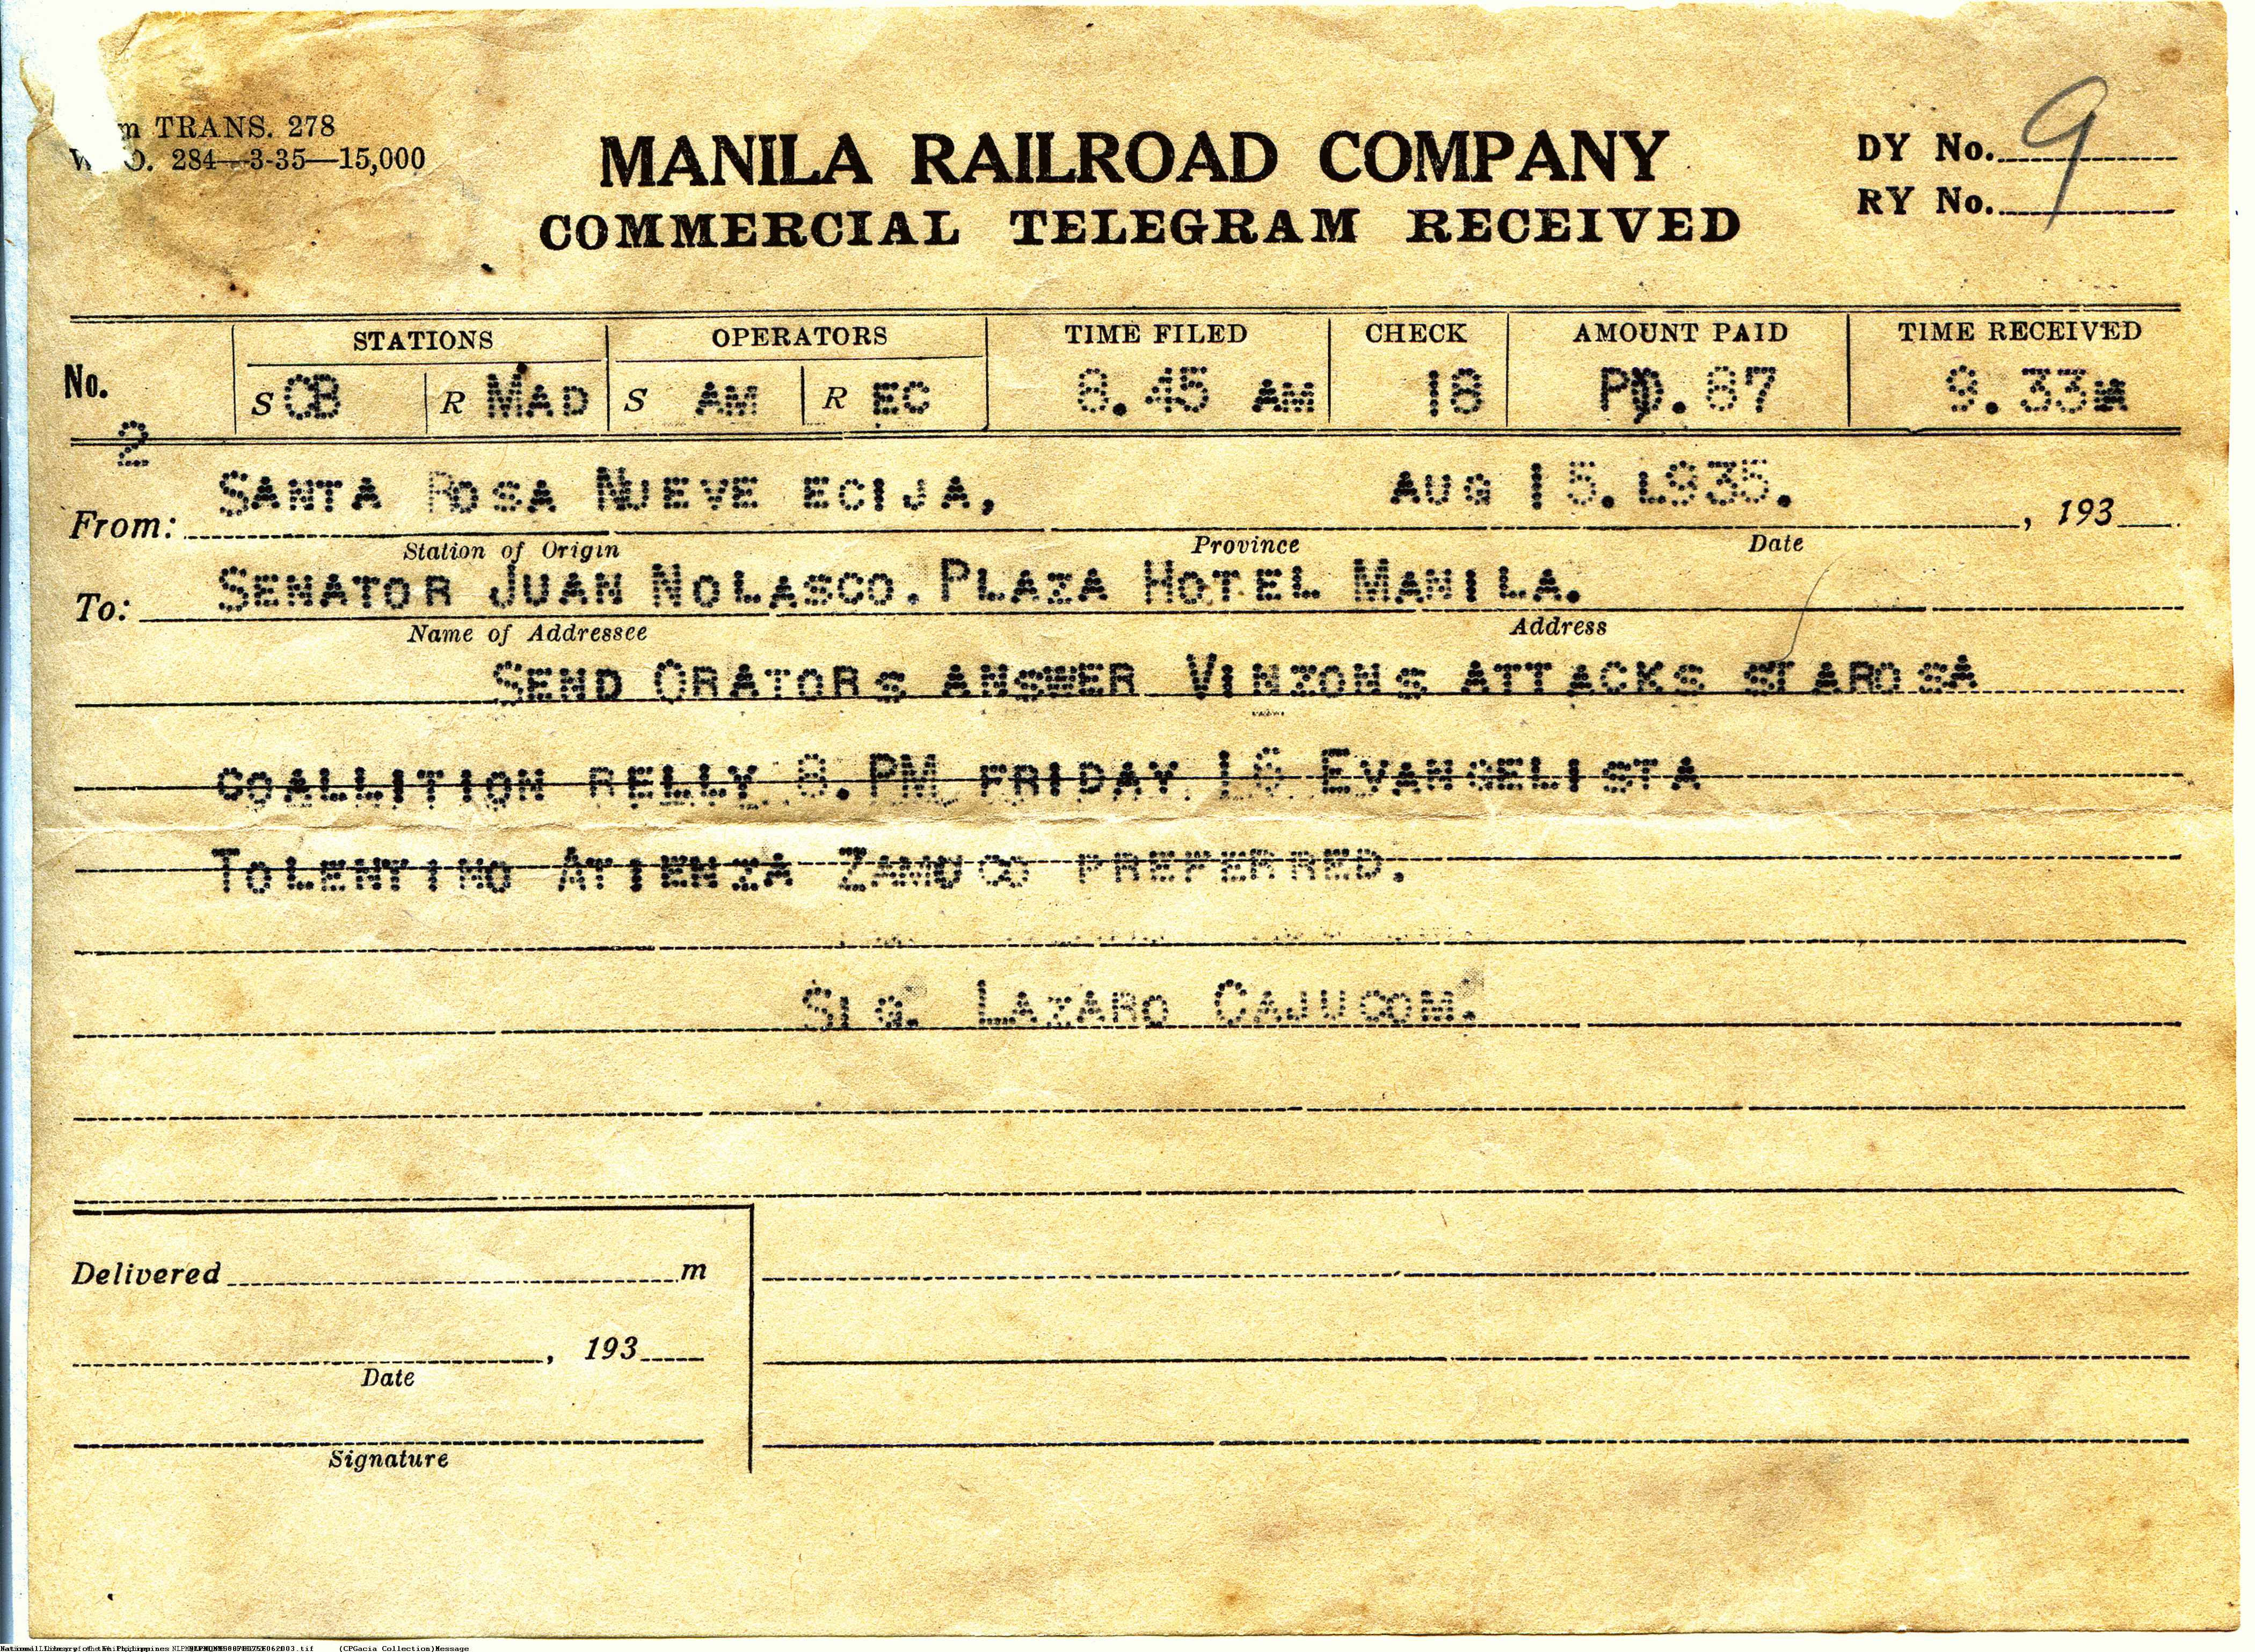 m TRANS. 278
W. O. 284—3-35—15,000
MANILA RAILROAD COMPANY
COMMERCIAL TELEGRAM RECEIVED
DY No. 9
RY No.
No. STATIONS OPERATORS TIME FILED CHECK AMOUNT PAID TIME RECEIVED
S CB R MAD S AM R EC 8.45 AM 18 P0.87 9.33
2
From: SANTA ROSA NUEVE ECIJA, AUG 15. L935. , 193
Station of Origin Province Date
To: SENATOR JUAN NOLASCO. PLAZA HOTEL MANILA.
Name of Addressee Address
SEND ORATORS ANSWER VINZONS ATTACKS STAROSA
COALLITION RELLY 8.PM FRIDAY 16 EVANGELISTA
TOLENTINO ATIENZA ZAMUCO PREFERRED.
SIG. LAZARO CAJUCOM.
Delivered m
, 193
Date
Signature
(CPGacia Collection)Message